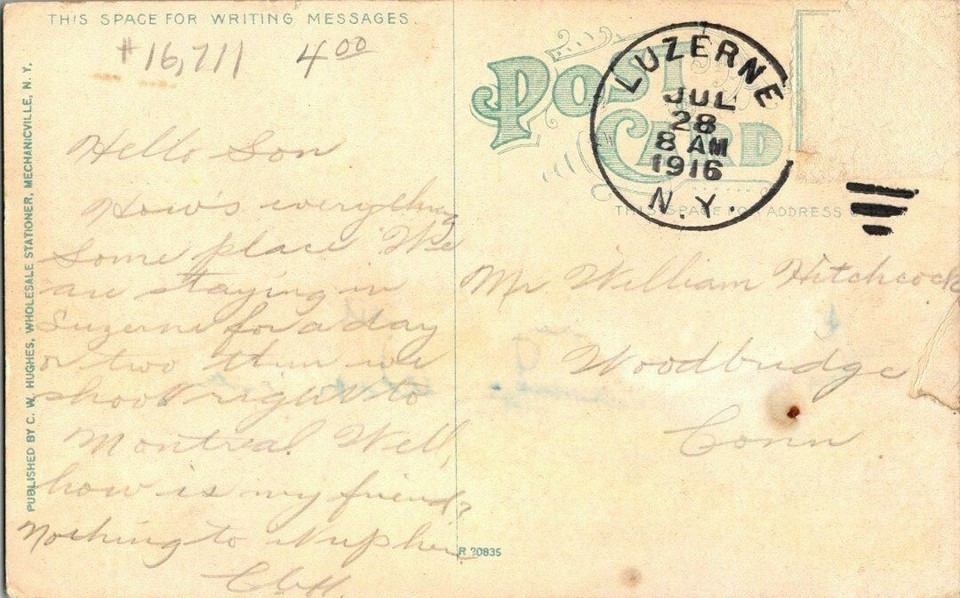 THIS SPACE FOR WRITING MESSAGES.
#16,711 4 00
PUBLISHED BY C. W. HUGHES, WHOLESALE STATIONER, MECHANICVILLE, N. Y.
Hello Son
How's everything
Some place We
are staying in
Luzerne for a day
or two then we
shoot right to
Montreal. Well,
how is my friend?
Nothing to
POST CARD
LUZERNE
JUL
28
8 AM
1916
N. Y.
THIS SPACE FOR ADDRESS
Mr William Hitchcock
Woodbridge
Conn
R 20835